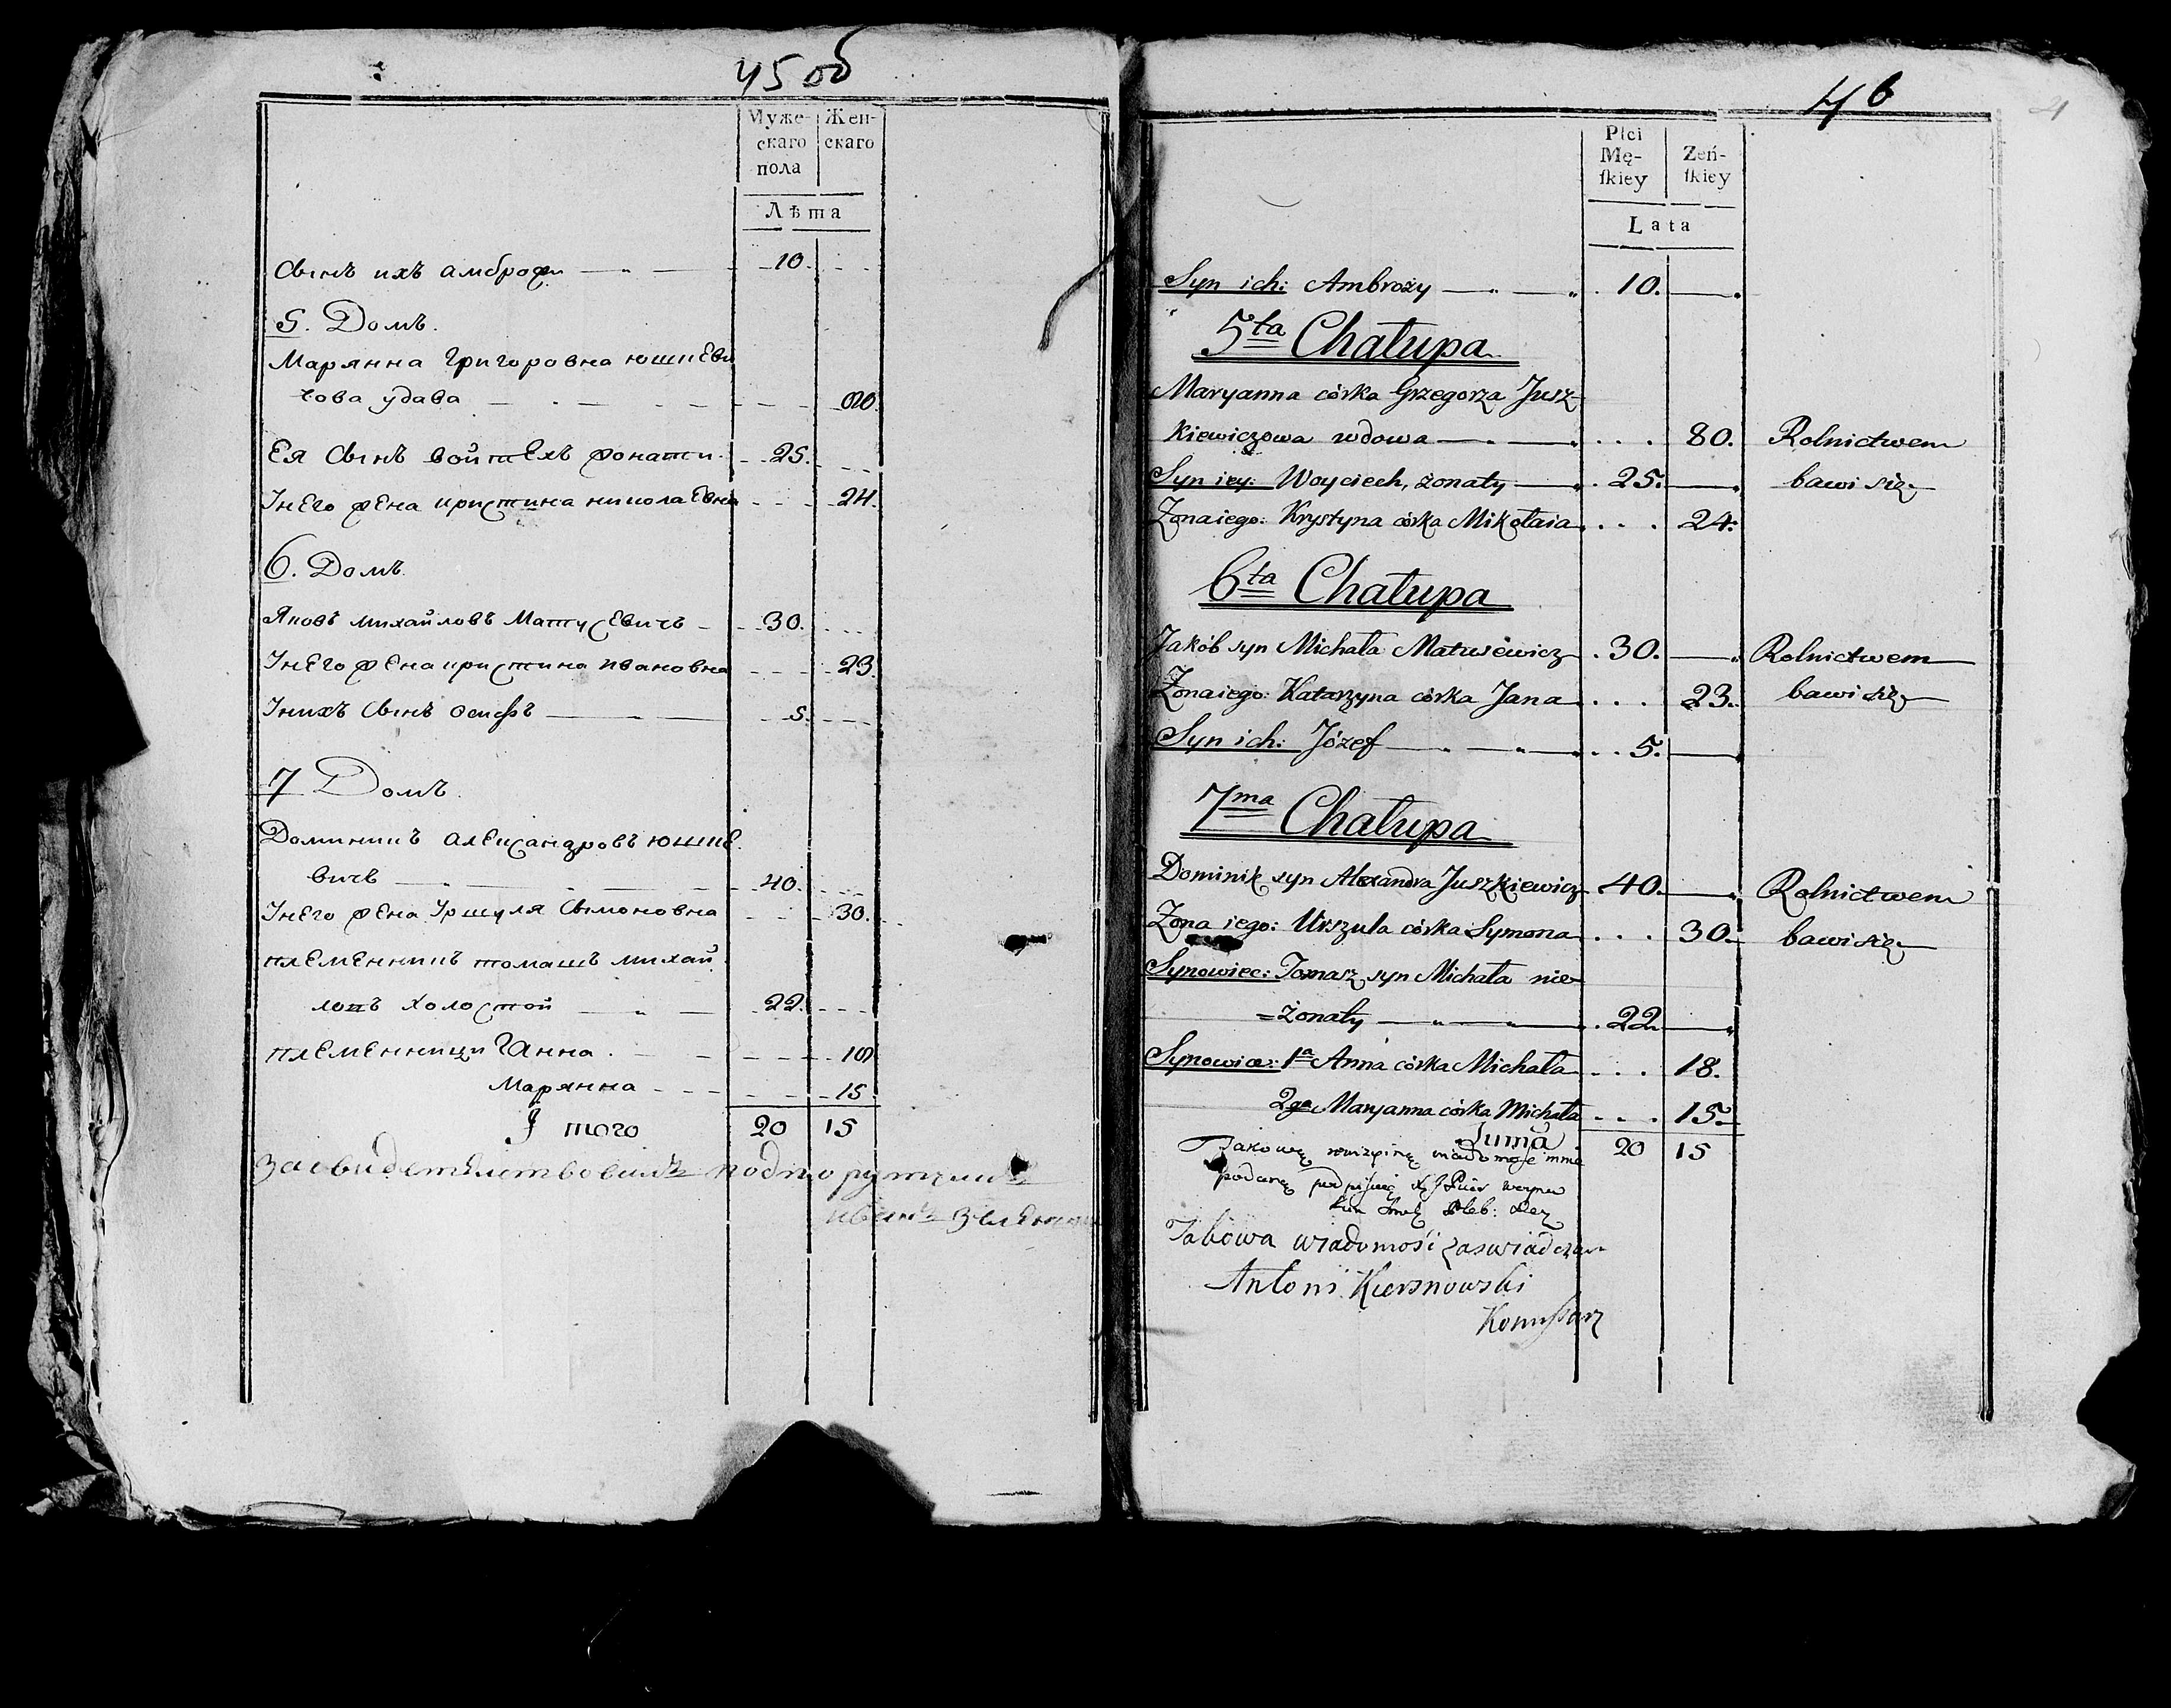 45 об
Муже-
скаго
пола
Жен-
скаго
Лѣта
Сынъ ихъ амброжи 10.
5. Домъ.
Марянна Григоровна юшкеви
чова удава 80
Ея Сынъ войтехъ жонати 25.
Інего жена кристина николаевна 24.
6. Домъ.
Яковъ михайловъ Матусевичъ 30.
Інего жена кристина ивановна 23.
Інихъ Сынъ осифъ 5.
7 Домъ.
Доминикъ александровъ юшке
вичъ 40.
Інего жена Уршуля Сымоновна 30.
племенникъ томашъ михай
ловъ холостой 22.
племенници 1 Анна 18
Марянна 15
Ітого 20 15
Засвидетелствовалъ подпорутчикъ
иванъ
46
Płci
Mę-
skiey
Żeń-
skiey
Lata
Syn ich: Ambroży 10.
5ta Chałupa
Maryanna córka Grzegorza Jusz
kiewiczowa wdowa 80. Rolnictwem
Syn iey: Woyciech, żonaty 25. bawi się
Żona iego: Krystyna córka Mikołaia 24.
6ta Chałupa
Jakób syn Michała Matusewicz 30. Rolnictwem
Żona iego: Katarzyna córka Jana 23. bawi się
Syn ich: Józef 5.
7ma Chałupa
Dominik syn Alexandra Juszkiewicz 40. Rolnictwem
Żona iego: Urszula córka Symona 30. bawi się
Synowiec: Tomasz syn Michała nie
=żonaty 22
Synowice: 1a Anna córka Michała 18.
2ga Maryanna córka Michała 15.
Suma 20 15
Takową
podaną podpisuię
Pleb:
Takowa wiadomość zaswiadczam
Antoni Kiersnowski
Komissarz